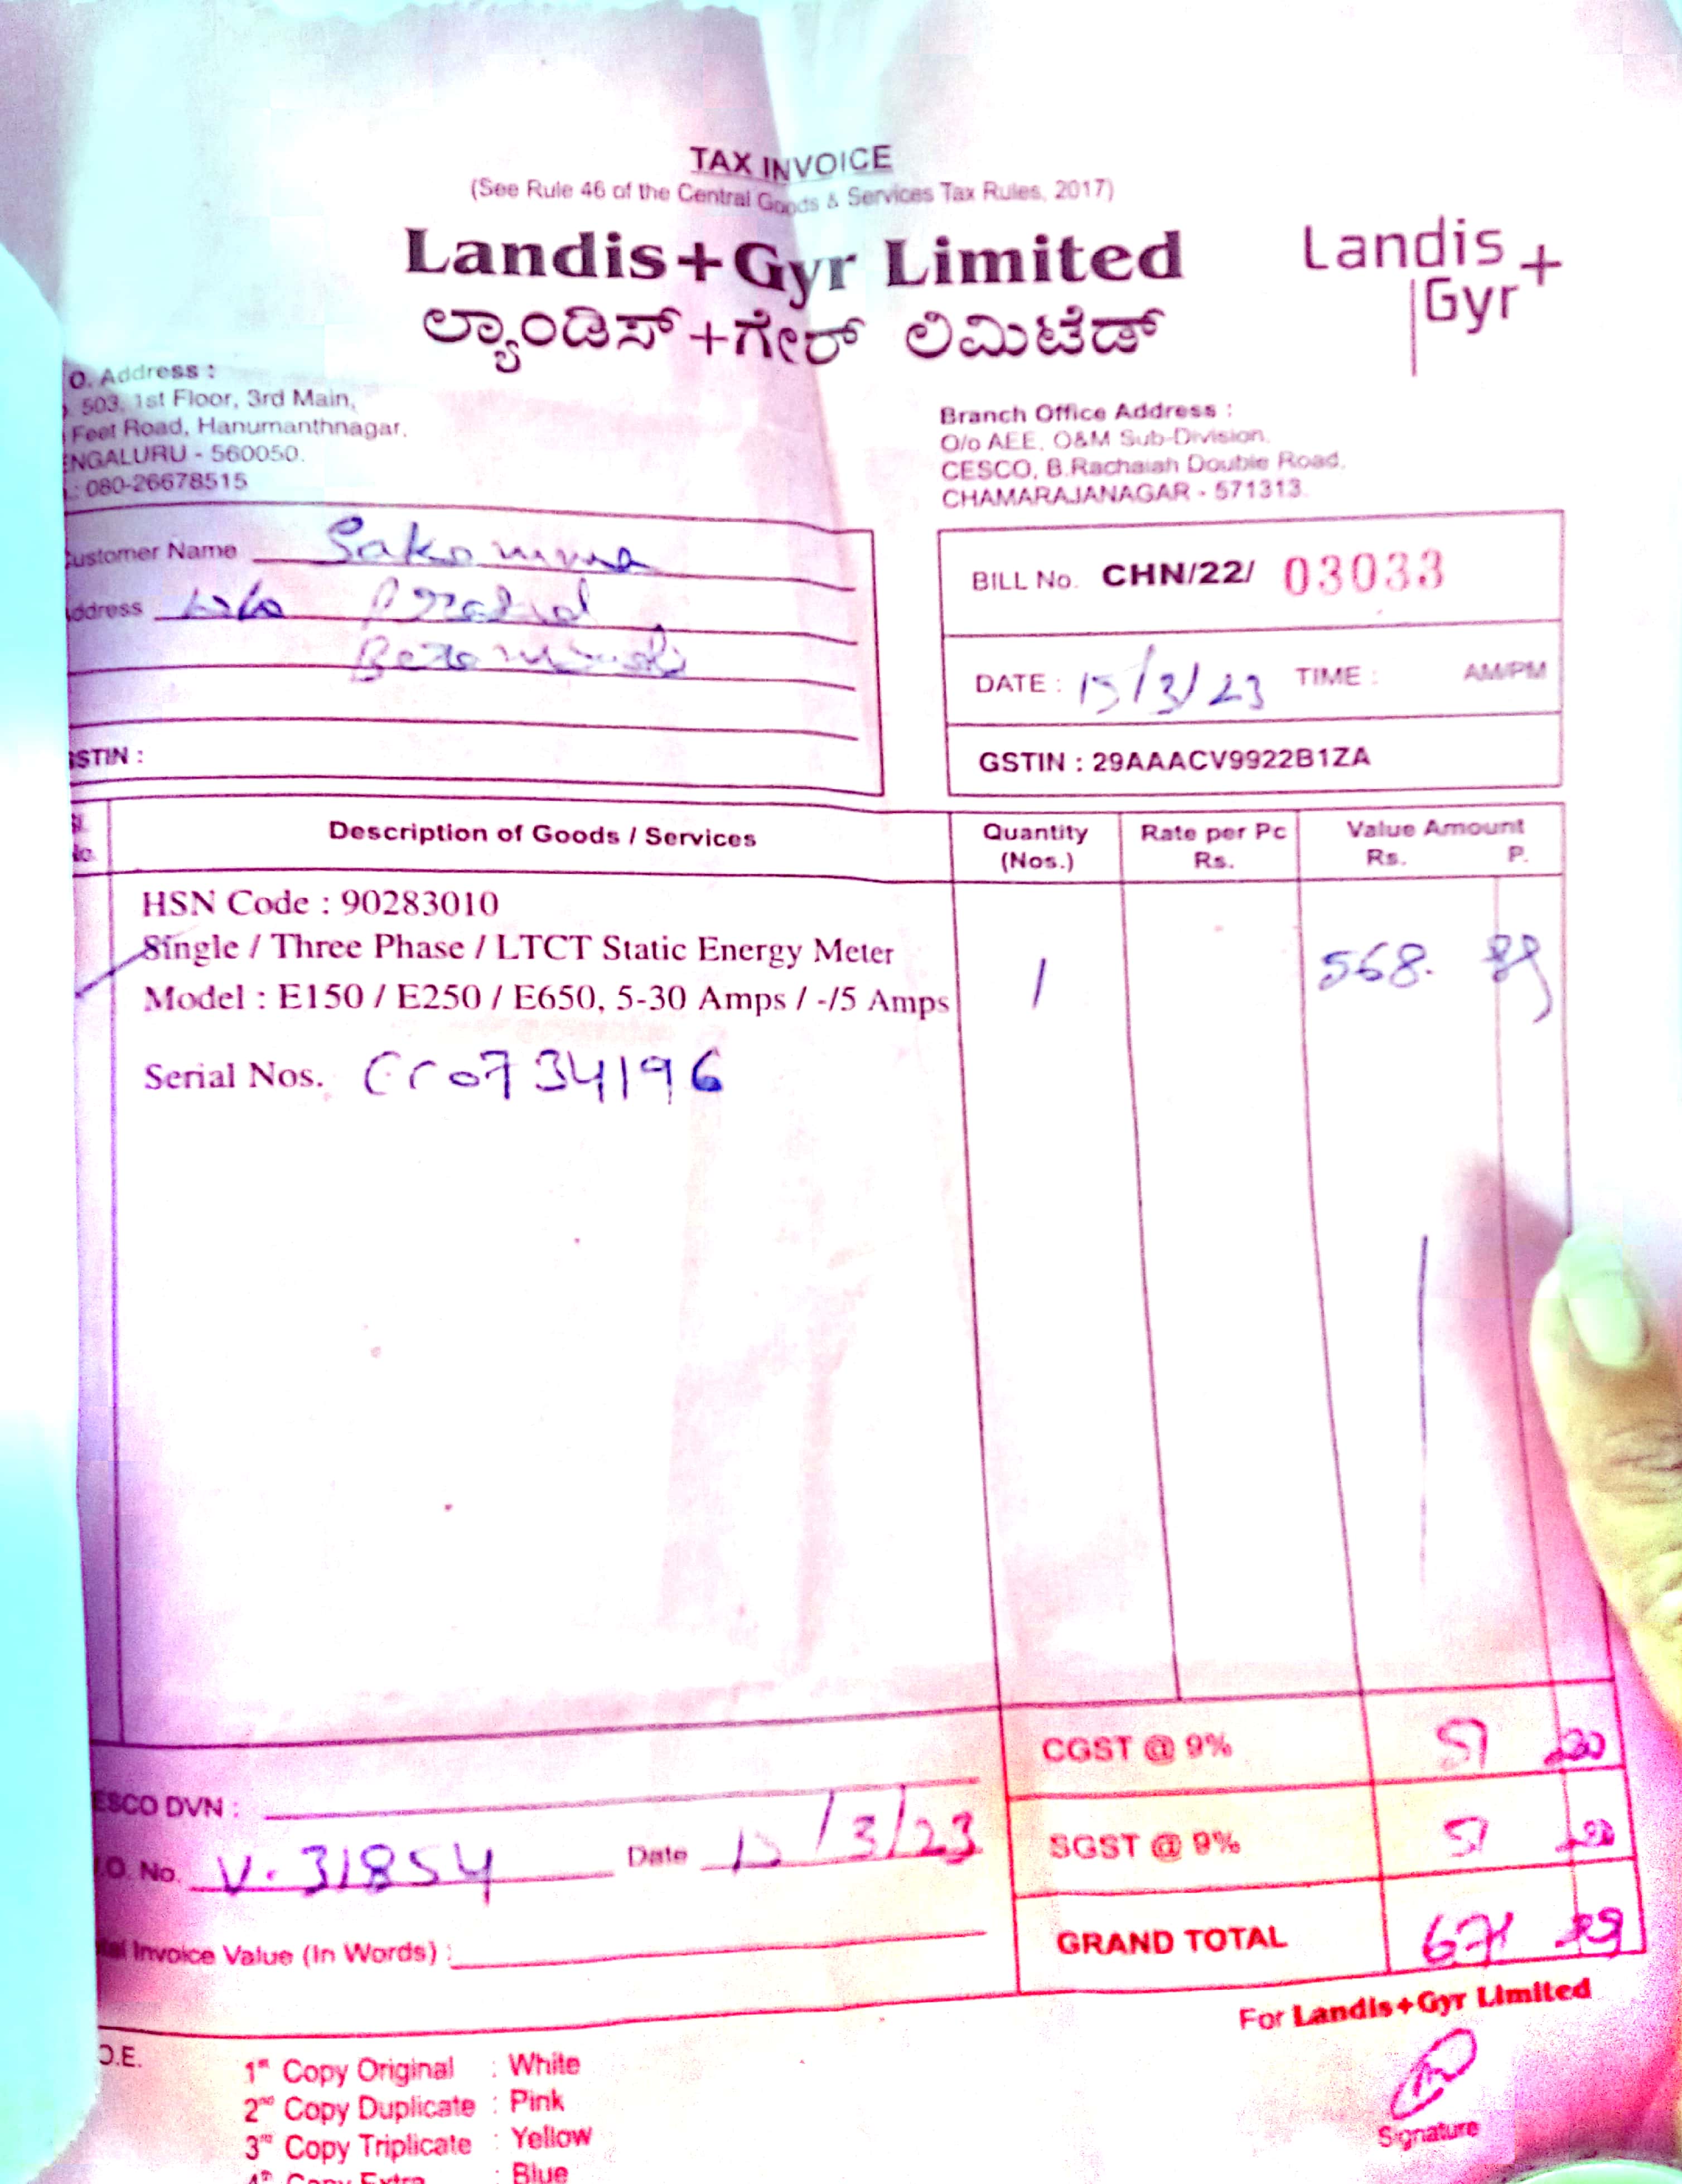 TAX INVOICE
(See Rule 46 of the Central Goods & Services Tax Rules, 2017)
Landis+Gyr Limited
Landis
Gyr+
ಲ್ಯಾಂಡಿಸ್+ಗೇರ್ ಲಿಮಿಟೆಡ್
O. Address :
503, 1st Floor, 3rd Main,
Feet Road, Hanumanthnagar,
ENGALURU - 560050.
: 080-26678515
Branch Office Address :
O/o AEE, O&M Sub-Division,
CESCO, B.Rachaiah Double Road,
CHAMARAJANAGAR - 571313.
ustomer Name Sakamma
ddress
STIN :
BILL No. CHN/22/ 03033
DATE : 15/3/23 TIME : AM/PM
GSTIN : 29AAACV9922B1ZA
Sl. No. Description of Goods / Services Quantity (Nos.) Rate per Pc Rs. Value Amount Rs. P.
HSN Code : 90283010
Single / Three Phase / LTCT Static Energy Meter 1 568.
Model : E150 / E250 / E650, 5-30 Amps / -/5 Amps
Serial Nos. 0734196
CGST @ 9% 51 20
ESCO DVN :
SGST @ 9% 51 20
.O. No. V. 31854 Date 15/3/23
GRAND TOTAL 671 29
tal Invoice Value (In Words) :
For Landis+Gyr Limited
O.E.
1st Copy Original : White
2nd Copy Duplicate : Pink
3rd Copy Triplicate : Yellow
4th Copy Extra : Blue
Signature